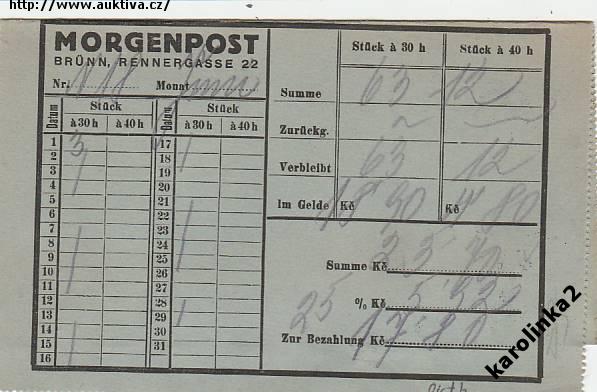 http://www.auktiva.cz/
MORGENPOST
BRÜNN, RENNERGASSE 22
Nr. Monat
Datum Stück Datum Stück
à 30 h à 40 h à 30 h à 40 h
1 3 17
2 18
3 19
4 20
5 21
6 22
7 23
8 24
9 25
10 26
11 27
12 28
13 29
14 30
15 31
16
Stück à 30 h Stück à 40 h
Summe 63 12
Zurückg.
Verbleibt 63 12
Im Gelde Kč 18 90 Kč 4 80
Summe Kč
25 % Kč
Zur Bezahlung Kč
karolinka2